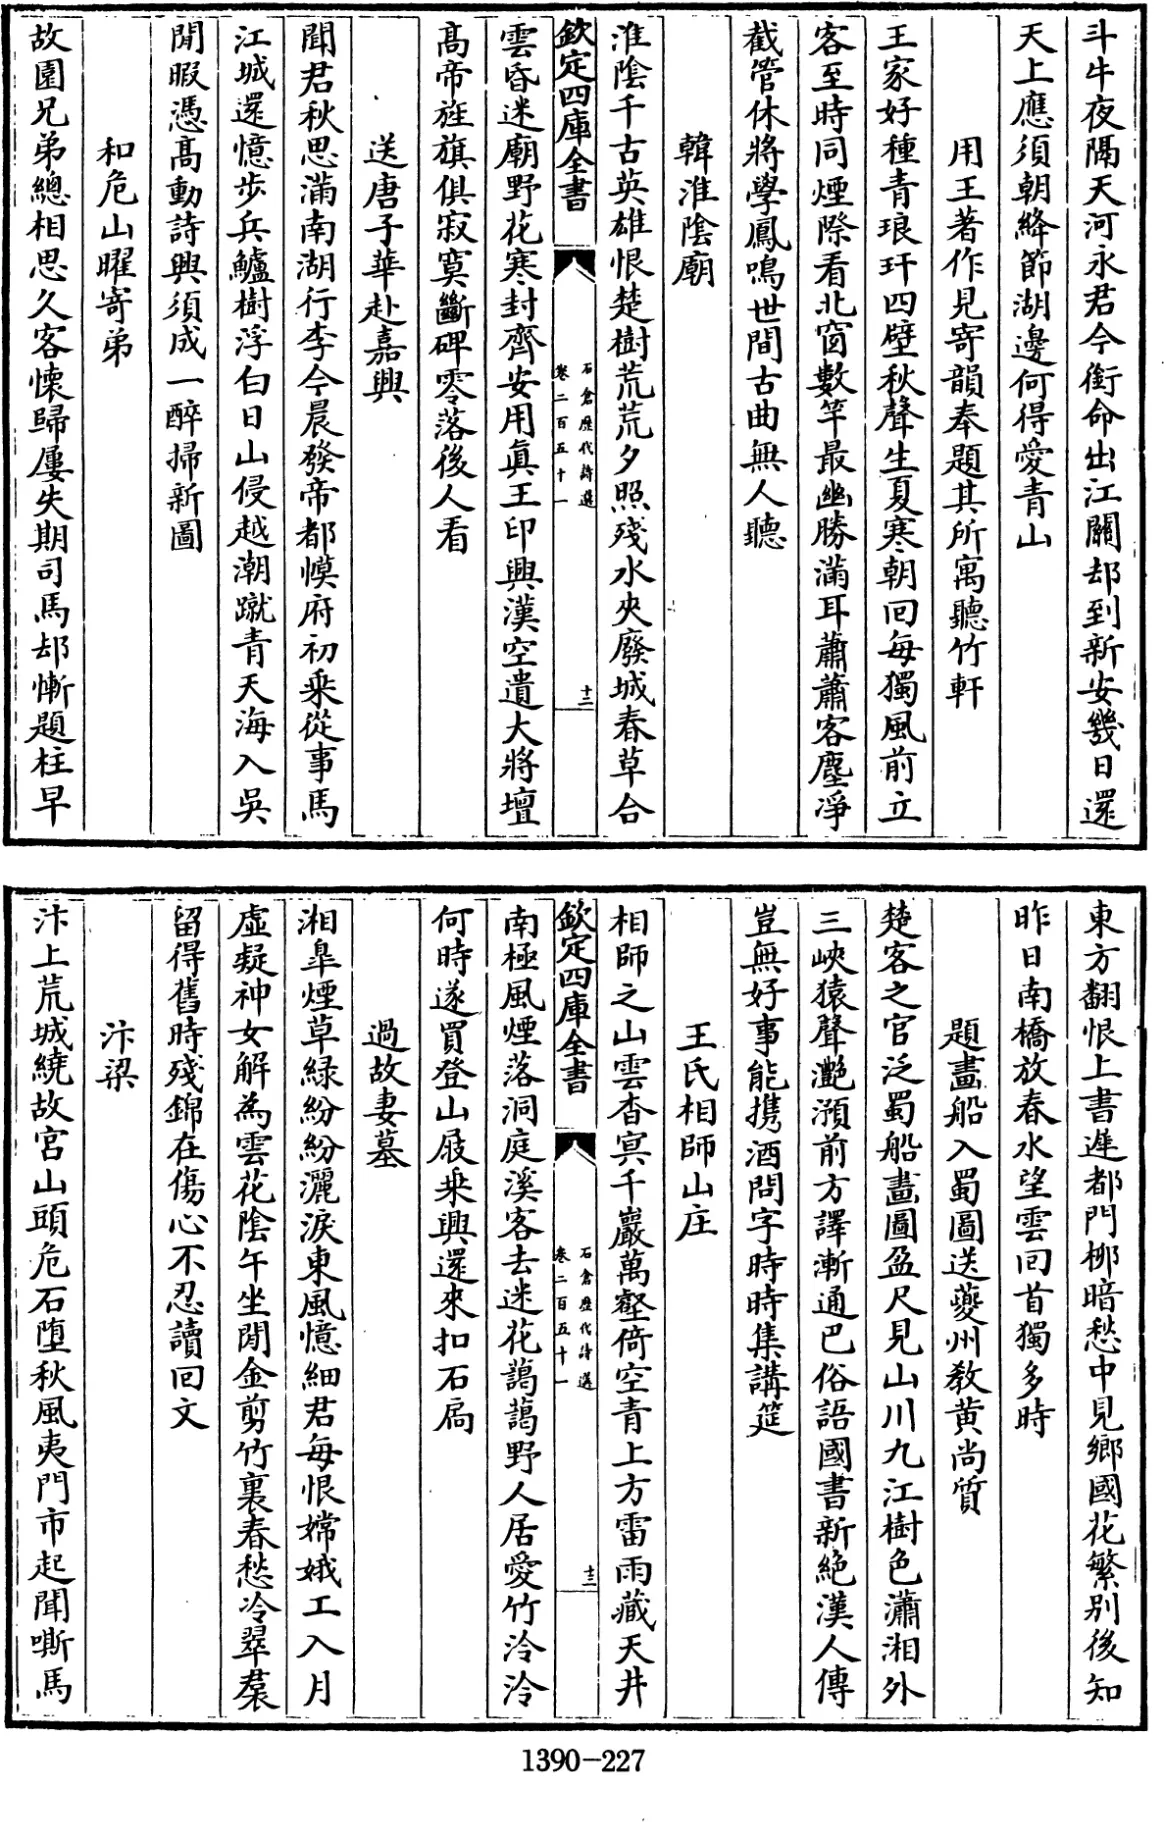 斗牛夜隔天河永君今銜命出江關却到新安幾日還
天上應須朝絳節湖邊何得愛青山
用王著作見寄韻奉題其所寓聽竹軒
王家好種青琅玕四壁秋聲生夏寒朝回每獨風前立
客至時同煙際看北窗數竿最幽勝滿耳蕭蕭客塵凈
截管休將學鳳鳴世間古曲無人聽
韓淮陰廟
淮陰千古英雄恨楚樹荒荒夕照殘水夾廢城春草合
欽定四庫全書
石倉歷代詩選
卷二百五十一
十二
雲昏迷廟野花寒封齊安用真王印興漢空遺大將壇
高帝旌旗俱寂寞斷碑零落後人看
送唐子華赴嘉興
聞君秋思滿南湖行李今晨發帝都幙府初乘從事馬
江城還憶步兵鱸樹浮白日山侵越潮蹴青天海入吳
閒暇憑高動詩興須成一醉掃新圖
和危山臞寄弟
故園兄弟總相思久客懐歸屢失期司馬却慚題柱早
東方翻恨上書遲都門栁暗愁中見鄉國花繁別後知
昨日南橋放春水望雲回首獨多時
題畫船入蜀圖送夔州教黃尚質
楚客之官泛蜀船畫圖盈尺見山川九江樹色瀟湘外
三峽猿聲灔澦前方譯漸通巴俗語國書新絶漢人傳
豈無好事能攜酒問字時時集講筵
王氏相師山庄
相師之山雲杳冥千巖萬壑倚空青上方雷雨藏天井
欽定四庫全書
石倉歷代詩選
卷二百五十一
十三
南極風煙落洞庭溪客去迷花藹藹野人居愛竹泠泠
何時遂買登山屐乗興還來扣石扃
過故妻墓
湘臯煙草綠紛紛灑淚東風憶細君每恨嫦娥工入月
虛疑神女解為雲花陰午坐閒金剪竹裏春愁冷翠裠
留得舊時殘錦在傷心不忍讀回文
汴梁
汴上荒城繞故宮山頭危石墮秋風夷門市起聞嘶馬
1390-227